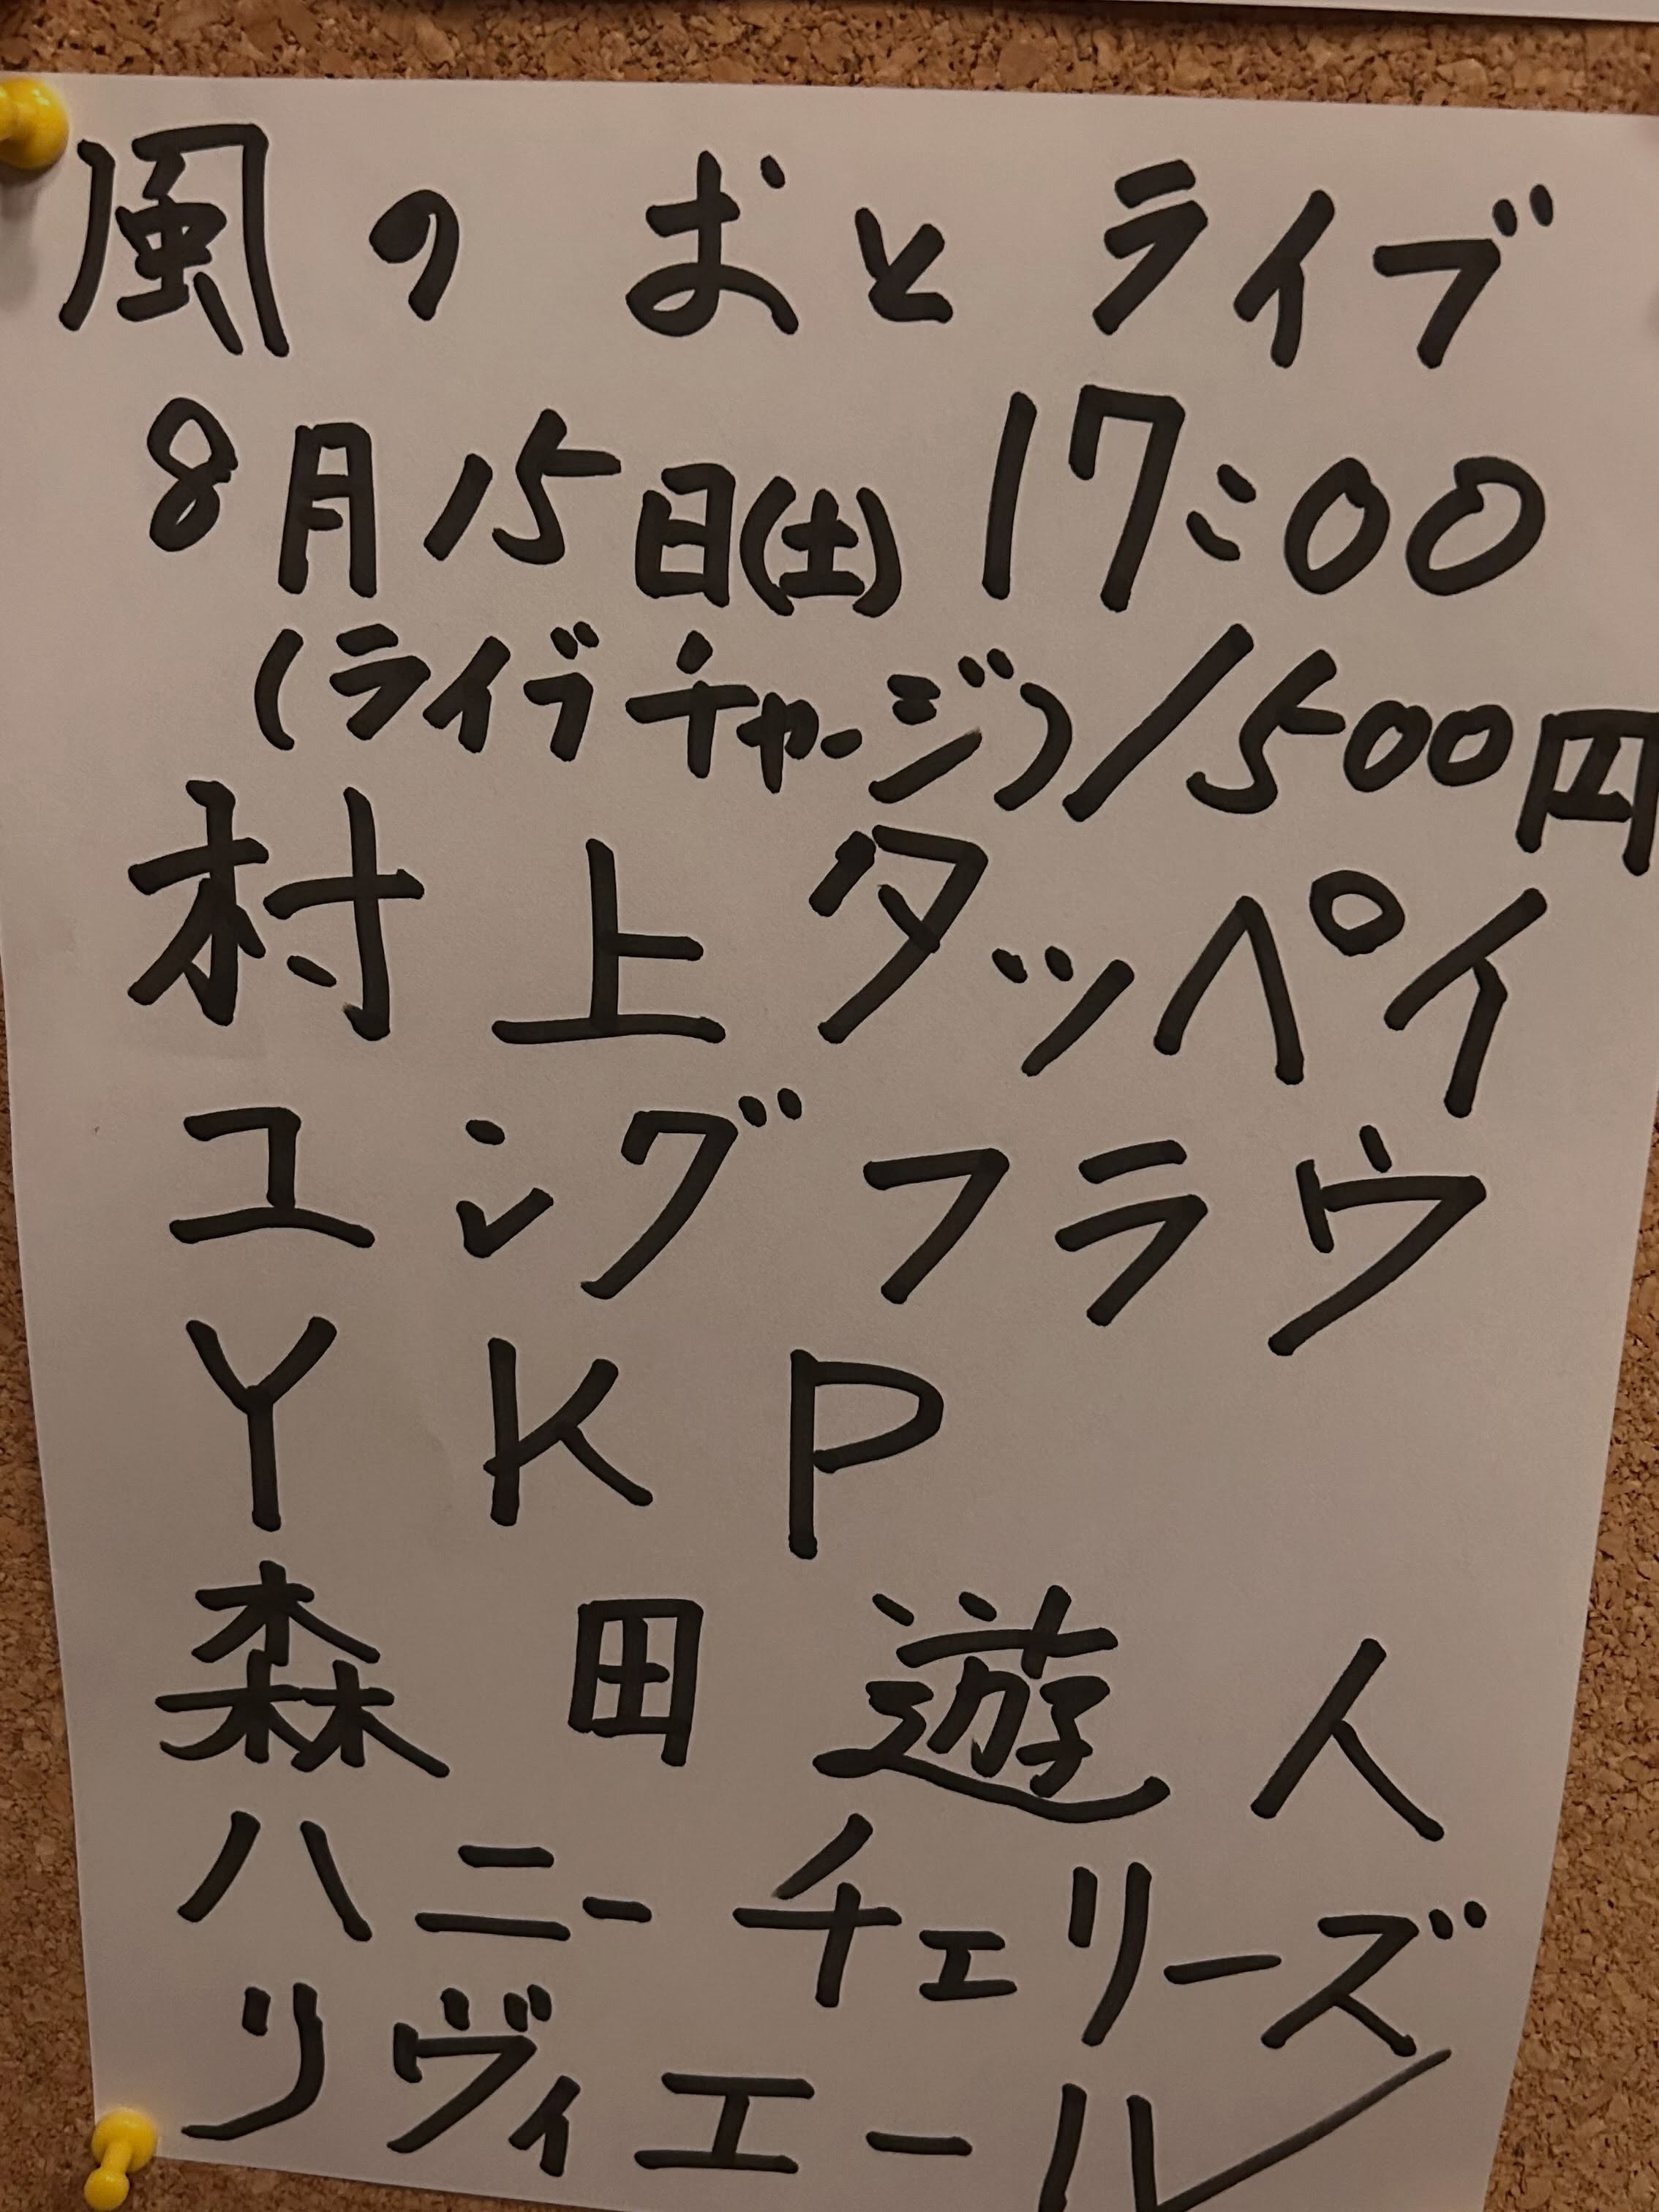 風のおとライブ
8月15日(土) 17:00
(ライブチャージ)1500円
村上タッペイ
ユングフラウ
YKP
森田遊人
ハニーチェリーズ
リヴィエール